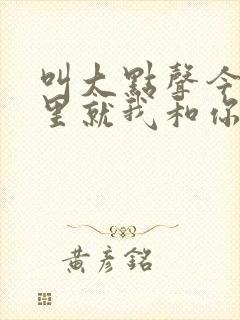 叫太點聲令
里就我和你
黃彥銘